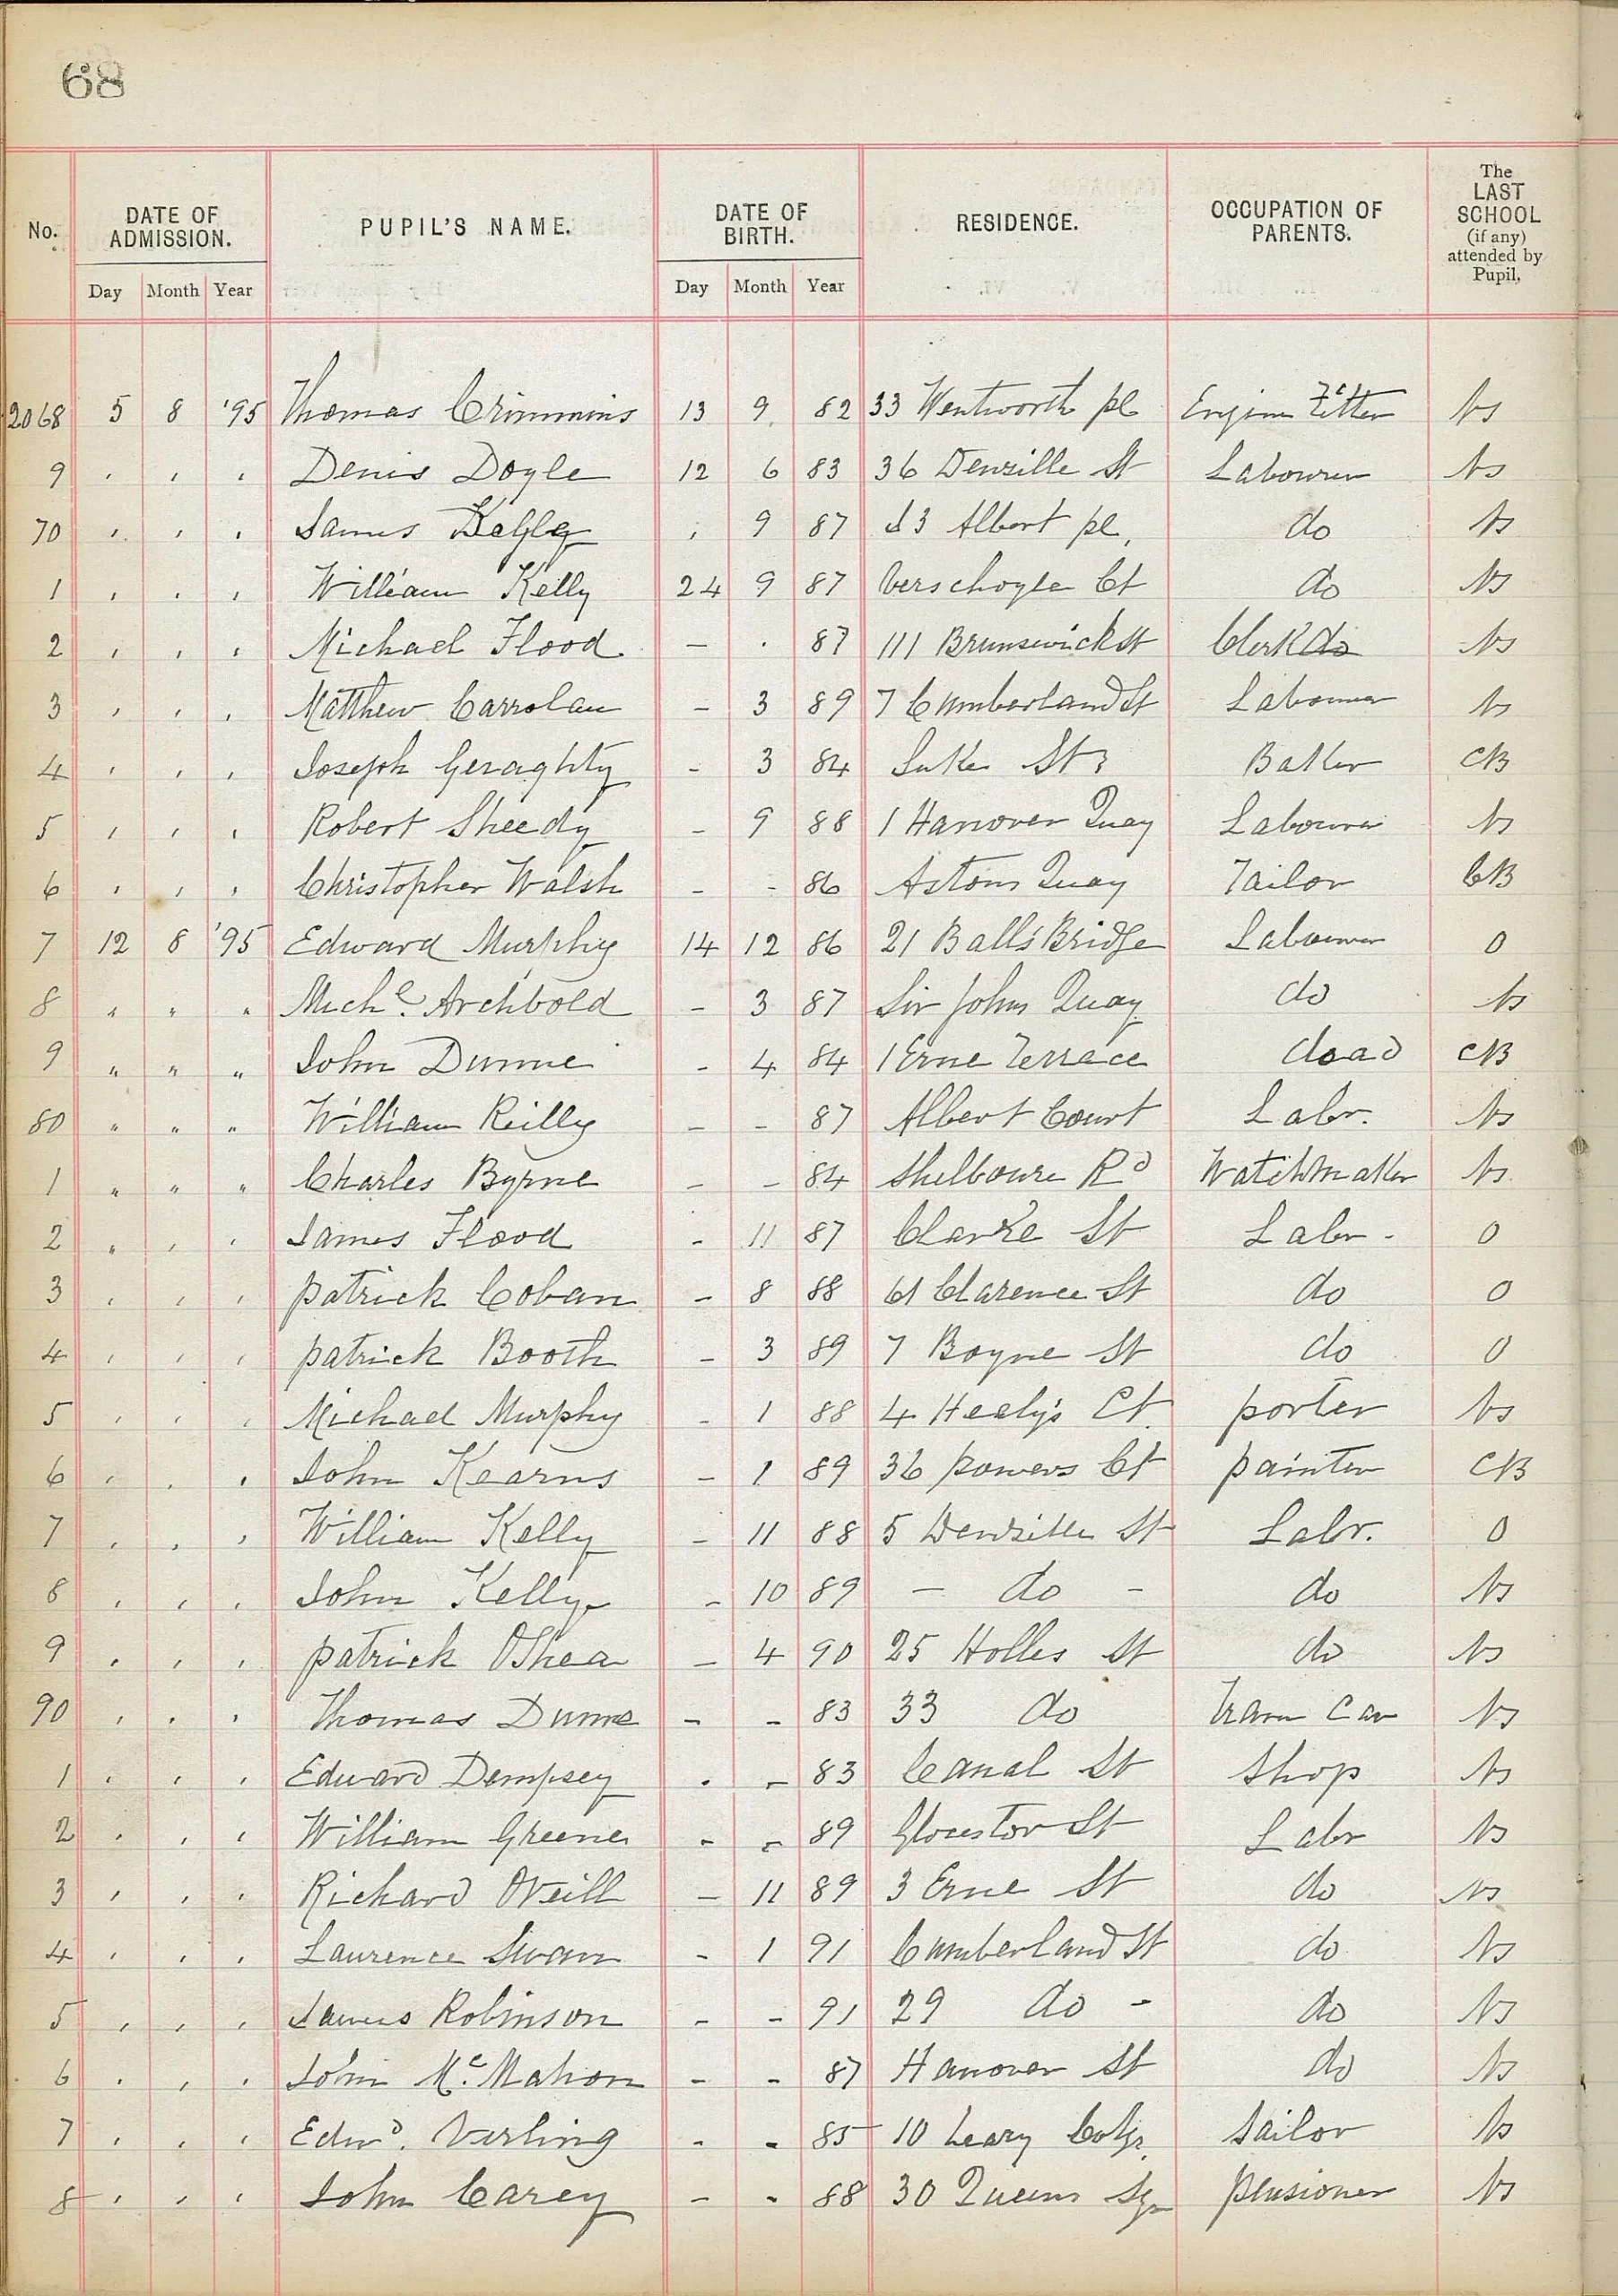 68
No. DATE OF ADMISSION. PUPIL'S NAME. DATE OF BIRTH. RESIDENCE. OCCUPATION OF PARENTS. The LAST SCHOOL (if any) attended by Pupil.
Day Month Year Day Month Year
2068 5 8 '95 Thomas Crimmins 13 9 82 33 Wentworth pl Engine Fitter Ns
9 " " " Denis Doyle 12 6 83 36 Denzille St Labourer Ns
70 " " " James " 9 87 Albert pl. do Ns
1 " " " William Kelly 24 9 87 Verschoyle Ct do Ns
2 " " " Michael Flood - . 87 111 Brunswick St Clerk do Ns
3 " " " Matthew Carrolan - 3 89 7 Cumberland St Labourer Ns
4 " " " Joseph Geraghty - 3 84 Luke St Baker CB
5 " " " Robert Sheedy - 9 88 1 Hanover Quay Labourer Ns
6 " " " Christopher Walsh - - 86 Astons Quay Tailor CB
7 12 8 '95 Edward Murphy 14 12 86 21 Balls Bridge Labourer 0
8 " " " Michl. Archbold - 3 87 Sir Johns Quay do Ns
9 " " " John Dunne - 4 84 1 Erne Terrace dead CB
80 " " " William Reilly - - 87 Albert Court Labr. Ns
1 " " " Charles Byrne - - 84 Shelbourne Rd Watchmaker Ns
2 " " " James Flood - 11 87 Clarke St Labr - 0
3 " " " Patrick Coban - 8 88 61 Clarence St do 0
4 " " " Patrick Booth - 3 89 7 Boyne St do 0
5 " " " Michael Murphy - 1 88 4 Heely's Ct. porter Ns
6 " " " John Kearns - 1 89 36 powers Ct painter CB
7 " " " William Kelly - 11 88 5 Denzille St Labr. 0
8 " " " John Kelly - 10 89 - do - do Ns
9 " " " Patrick O'Shea - 4 90 25 Holles St do Ns
90 " " " Thomas Dunne - - 83 33 do Tram Car Ns
1 " " " Edward Dempsey . - 83 Canal St Shop Ns
2 " " " William Greene - - 89 Glocestor St Labr Ns
3 " " " Richard ONeill - 11 89 3 Erne St do Ns
4 " " " Laurence Swan - 1 91 Cumberland St do Ns
5 " " " James Robinson - - 91 29 do - do Ns
6 " " " John Mc.Mahon - - 87 Hanover St do Ns
7 " " " Edwd. Verling - - 85 10 Leary Sailor Ns
8 " " " John Carey - - 88 30 Queens Sqr Pensioner Ns